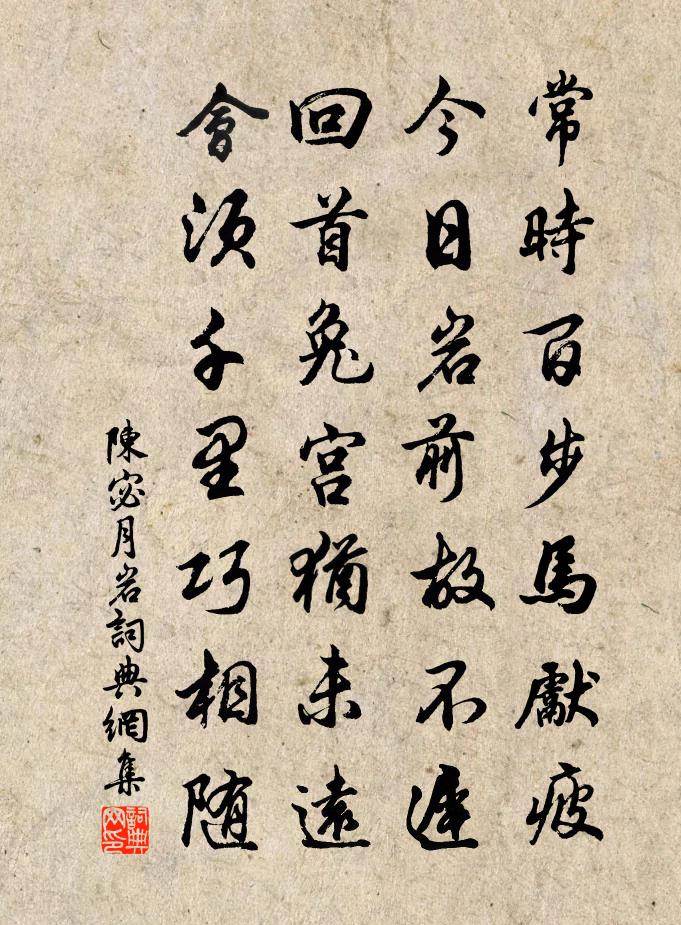 常時百步馬獻疲
今日岩前故不遲
回首兔宮猶未遠
會須千里巧相随
陳宓月岩詞典網集
詞典网印